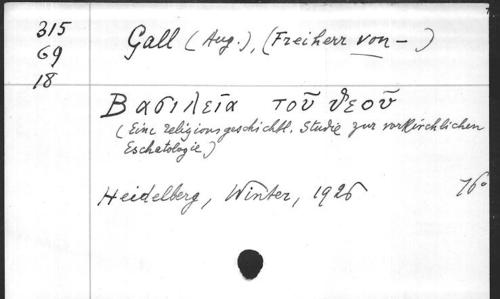 315
69
18
Gall (Aug.), (Freiherr von – )
Βασιλεῖα τοῦ ϑεοῦ
(Eine religionsgeschichtl. Studie zur vorkirchlichen
Eschatologie)
Heidelberg, Winter, 1926